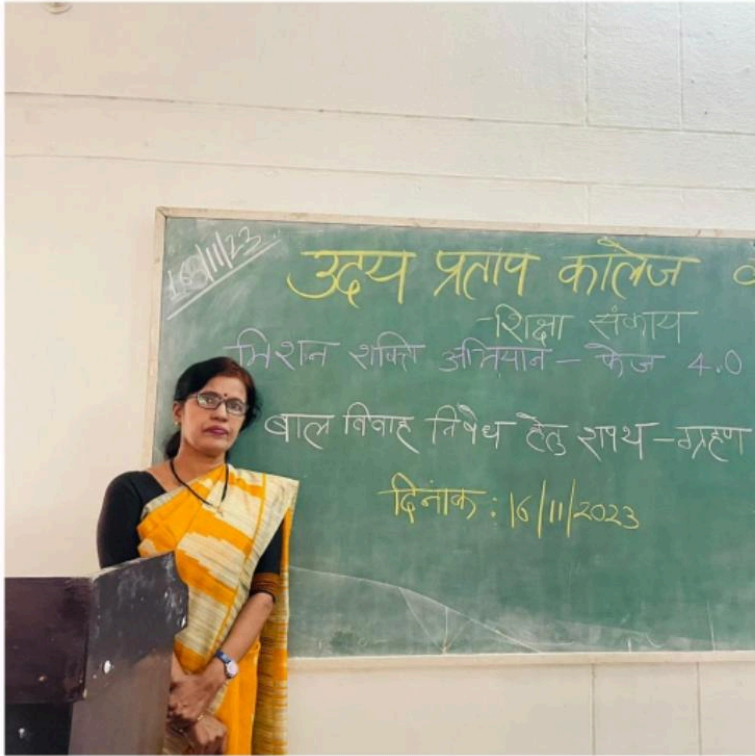 16/11/23
उदय प्रताप कॉलेज
-शिक्षा संकाय
मिशन शक्ति अभियान - फेज 4.0
बाल विवाह निषेध हेतु शपथ-ग्रहण
दिनांक: 16/11/2023